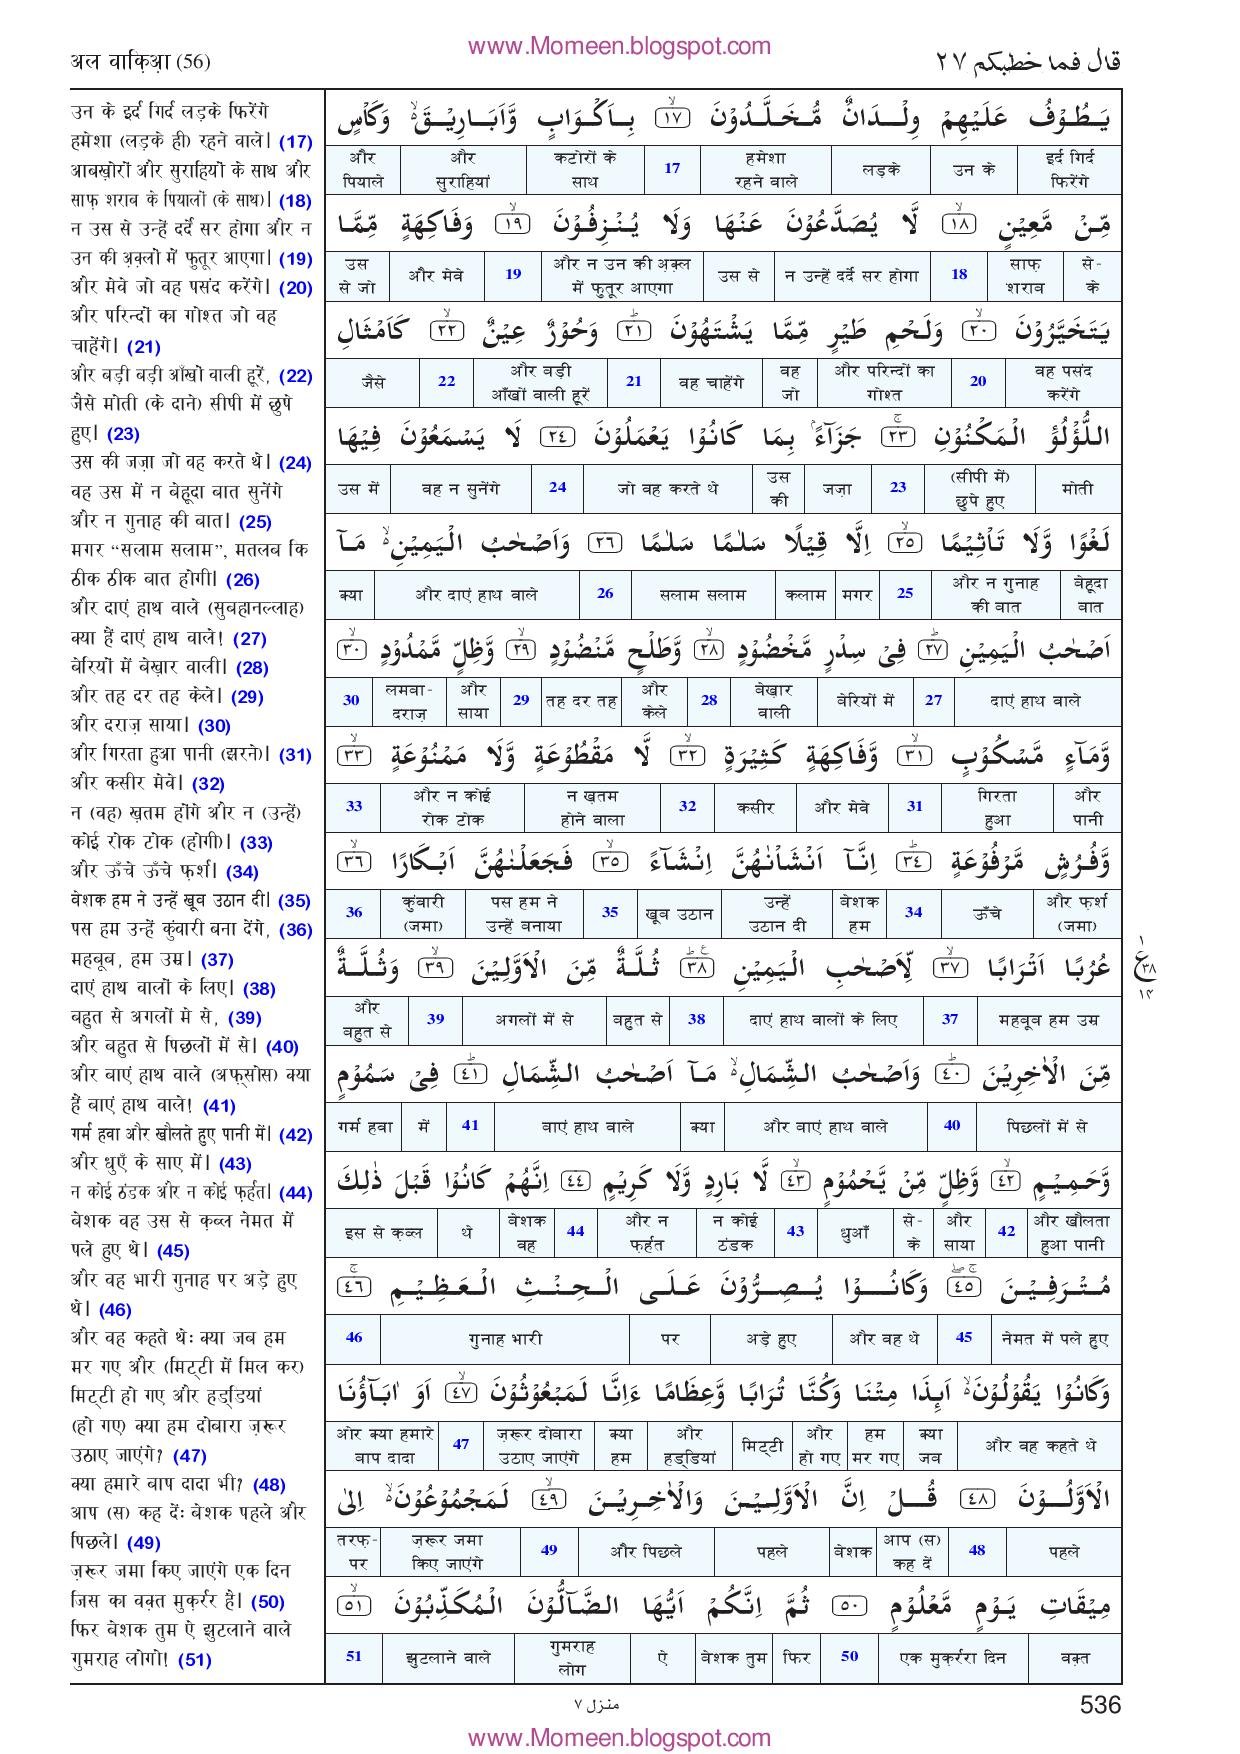 www.Momeen.blogspot.com
अल वाक़िआ़ (56)
قال فما خطبكم ٢٧
उन के इर्द गिर्द लड़के फिरेंगे
हमेशा (लड़के ही) रहने वाले। (17)
आबख़ोरों और सुराहियों के साथ और
साफ़ शराब के पियालों (के साथ)। (18)
न उस से उन्हें दर्दे सर होगा और न
उन की अ़क़्लों में फ़ुतूर आएगा। (19)
और मेवे जो वह पसंद करेंगे। (20)
और परिन्दों का गोश्त जो वह
चाहेंगे। (21)
और बड़ी बड़ी आँखों वाली हूरें, (22)
जैसे मोती (के दाने) सीपी में छुपे
हुए। (23)
उस की जज़ा जो वह करते थे। (24)
वह उस में न बेहूदा बात सुनेंगे
और न गुनाह की बात। (25)
मगर “सलाम सलाम”, मतलब कि
ठीक ठीक बात होगी। (26)
और दाएं हाथ वाले (सुबहानल्लाह)
क्या हैं दाएं हाथ वाले! (27)
बेरियों में बेख़ार वाली। (28)
और तह दर तह केले। (29)
और दराज़ साया। (30)
और गिरता हुआ पानी (झरने)। (31)
और कसीर मेवे। (32)
न (वह) ख़तम होंगे और न (उन्हें)
कोई रोक टोक (होगी)। (33)
और ऊँचे ऊँचे फ़र्श। (34)
बेशक हम ने उन्हें ख़ूब उठान दी। (35)
पस हम उन्हें कुंवारी बना देंगे, (36)
महबूब, हम उम्र। (37)
दाएं हाथ वालों के लिए। (38)
बहुत से अगलों में से, (39)
और बहुत से पिछलों में से। (40)
और बाएं हाथ वाले (अफ़्सोस) क्या
हैं बाएं हाथ वाले! (41)
गर्म हवा और खौलते हुए पानी में। (42)
और धुएँ के साए में। (43)
न कोई ठंडक और न कोई फ़र्हत। (44)
बेशक वह उस से क़ब्ल नेमत में
पले हुए थे। (45)
और वह भारी गुनाह पर अड़े हुए
थे। (46)
और वह कहते थे: क्या जब हम
मर गए और (मिट्टी में मिल कर)
मिट्टी हो गए और हड्डियां
(हो गए) क्या हम दोबारा ज़रूर
उठाए जाएंगे? (47)
क्या हमारे बाप दादा भी? (48)
आप (स) कह दें: बेशक पहले और
पिछले। (49)
ज़रूर जमा किए जाएंगे एक दिन
जिस का वक़्त मुक़र्रर है। (50)
फिर बेशक तुम ऐ झुटलाने वाले
गुमराह लोगो! (51)
يَطُوْفُ عَلَيْهِمْ وِلْدَانٌ مُّخَلَّدُوْنَ ۙ﴿١٧﴾ بِاَكْوَابٍ وَّاَبَارِيْقَ ۙ وَكَاْسٍ
इर्द गिर्द फिरेंगे | उन के | लड़के | हमेशा रहने वाले | 17 | कटोरों के साथ | और सुराहियां | और पियाले
مِّنْ مَّعِيْنٍ ۙ﴿١٨﴾ لَّا يُصَدَّعُوْنَ عَنْهَا وَلَا يُنْزِفُوْنَ ۙ﴿١٩﴾ وَفَاكِهَةٍ مِّمَّا
से-के | साफ़ शराब | 18 | न उन्हें दर्दे सर होगा | उस से | और न उन की अ़क़्ल में फ़ुतूर आएगा | 19 | और मेवे | उस से जो
يَتَخَيَّرُوْنَ ۙ﴿٢٠﴾ وَلَحْمِ طَيْرٍ مِّمَّا يَشْتَهُوْنَ ؕ﴿٢١﴾ وَحُوْرٌ عِيْنٌ ۙ﴿٢٢﴾ كَاَمْثَالِ
वह पसंद करेंगे | 20 | और परिन्दों का गोश्त | वह जो | वह चाहेंगे | 21 | और बड़ी आँखों वाली हूरें | 22 | जैसे
اللُّؤْلُؤِ الْمَكْنُوْنِ ۚ﴿٢٣﴾ جَزَآءًۢ بِمَا كَانُوْا يَعْمَلُوْنَ ﴿٢٤﴾ لَا يَسْمَعُوْنَ فِيْهَا
मोती | (सीपी में) छुपे हुए | 23 | जज़ा | उस की | जो वह करते थे | 24 | वह न सुनेंगे | उस में
لَغْوًا وَّلَا تَاْثِيْمًا ۙ﴿٢٥﴾ اِلَّا قِيْلًا سَلٰمًا سَلٰمًا ﴿٢٦﴾ وَاَصْحٰبُ الْيَمِيْنِ ۙ مَآ
बेहूदा बात | और न गुनाह की बात | 25 | मगर | कलाम | सलाम सलाम | 26 | और दाएं हाथ वाले | क्या
اَصْحٰبُ الْيَمِيْنِ ؕ﴿٢٧﴾ فِيْ سِدْرٍ مَّخْضُوْدٍ ۙ﴿٢٨﴾ وَّطَلْحٍ مَّنْضُوْدٍ ۙ﴿٢٩﴾ وَّظِلٍّ مَّمْدُوْدٍ ۙ﴿٣٠﴾
दाएं हाथ वाले | 27 | बेरियों में | बेख़ार वाली | 28 | और केले | तह दर तह | 29 | और साया | लमबा-दराज़ | 30
وَّمَآءٍ مَّسْكُوْبٍ ۙ﴿٣١﴾ وَّفَاكِهَةٍ كَثِيْرَةٍ ۙ﴿٣٢﴾ لَّا مَقْطُوْعَةٍ وَّلَا مَمْنُوْعَةٍ ۙ﴿٣٣﴾
और पानी | गिरता हुआ | 31 | और मेवे | कसीर | 32 | न ख़तम होने वाला | और न कोई रोक टोक | 33
وَّفُرُشٍ مَّرْفُوْعَةٍ ؕ﴿٣٤﴾ اِنَّآ اَنْشَاْنٰهُنَّ اِنْشَآءً ۙ﴿٣٥﴾ فَجَعَلْنٰهُنَّ اَبْكَارًا ۙ﴿٣٦﴾
और फ़र्श (जमा) | ऊँचे | 34 | बेशक हम | उन्हें उठान दी | ख़ूब उठान | 35 | पस हम ने उन्हें बनाया | कुंवारी (जमा) | 36
عُرُبًا اَتْرَابًا ۙ﴿٣٧﴾ لِّاَصْحٰبِ الْيَمِيْنِ ؕ﴿٣٨﴾ ثُلَّةٌ مِّنَ الْاَوَّلِيْنَ ۙ﴿٣٩﴾ وَثُلَّةٌ
महबूब हम उम्र | 37 | दाएं हाथ वालों के लिए | 38 | बहुत से | अगलों में से | 39 | और बहुत से
١ ع ٣٨ ١٤
مِّنَ الْاٰخِرِيْنَ ؕ﴿٤٠﴾ وَاَصْحٰبُ الشِّمَالِ ۙ مَآ اَصْحٰبُ الشِّمَالِ ؕ﴿٤١﴾ فِيْ سَمُوْمٍ
पिछलों में से | 40 | और बाएं हाथ वाले | क्या | बाएं हाथ वाले | 41 | में | गर्म हवा
وَّحَمِيْمٍ ۙ﴿٤٢﴾ وَّظِلٍّ مِّنْ يَّحْمُوْمٍ ۙ﴿٤٣﴾ لَّا بَارِدٍ وَّلَا كَرِيْمٍ ﴿٤٤﴾ اِنَّهُمْ كَانُوْا قَبْلَ ذٰلِكَ
और खौलता हुआ पानी | 42 | और साया | से-के | धुआँ | 43 | न कोई ठंडक | और न फ़र्हत | 44 | बेशक वह | थे | इस से क़ब्ल
مُتْرَفِيْنَ ۚۖ﴿٤٥﴾ وَكَانُوْا يُصِرُّوْنَ عَلَى الْحِنْثِ الْعَظِيْمِ ۚ﴿٤٦﴾
नेमत में पले हुए | 45 | और वह थे | अड़े हुए | पर | गुनाह भारी | 46
وَكَانُوْا يَقُوْلُوْنَ ۙ اَىِٕذَا مِتْنَا وَكُنَّا تُرَابًا وَّعِظَامًا ءَاِنَّا لَمَبْعُوْثُوْنَ ۙ﴿٤٧﴾ اَوَ اٰبَآؤُنَا
और वह कहते थे | क्या जब | हम मर गए | और हो गए | मिट्टी | और हड्डियां | क्या हम | ज़रूर दोबारा उठाए जाएंगे | 47 | और क्या हमारे बाप दादा
الْاَوَّلُوْنَ ﴿٤٨﴾ قُلْ اِنَّ الْاَوَّلِيْنَ وَالْاٰخِرِيْنَ ۙ﴿٤٩﴾ لَمَجْمُوْعُوْنَ ۙ اِلٰى
पहले | 48 | आप (स) कह दें | बेशक | पहले | और पिछले | 49 | ज़रूर जमा किए जाएंगे | तरफ़-पर
مِيْقَاتِ يَوْمٍ مَّعْلُوْمٍ ﴿٥٠﴾ ثُمَّ اِنَّكُمْ اَيُّهَا الضَّآلُّوْنَ الْمُكَذِّبُوْنَ ۙ﴿٥١﴾
वक़्त | एक मुक़र्ररा दिन | 50 | फिर | बेशक तुम | ऐ | गुमराह लोग | झुटलाने वाले | 51
منزل ٧
536
www.Momeen.blogspot.com